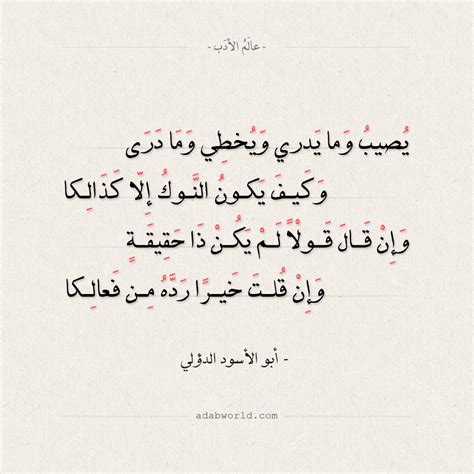 - عالَمُ الأدَب -
يُصيبُ وَما يَدري وَيُخطِي وَمَا دَرَى
وَكَيـفَ يَكـونُ النَّـوكُ إلّا كَذَالِـكا
وَإِنْ قَـالَ قَـوْلاً لَـمْ يَكُـنْ ذَا حَقِيقَـةٍ
وَإِنْ قُلـتَ خَيـرًا رَدَّهُ مِـن فَعالِـكا
- أبو الأسود الدؤلي
adabworld.com